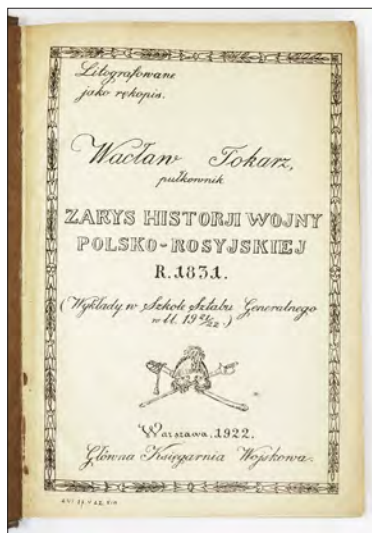 Litografowane
jako rękopis.
Wacław Tokarz,
pułkownik
ZARYS HISTORJI WOJNY
POLSKO-ROSYJSKIEJ
R.1831.
(Wykłady w Szkole Sztabu Generalnego
w ll. 1921/22.)
Warszawa.1922.
Główna Księgarnia Wojskowa.